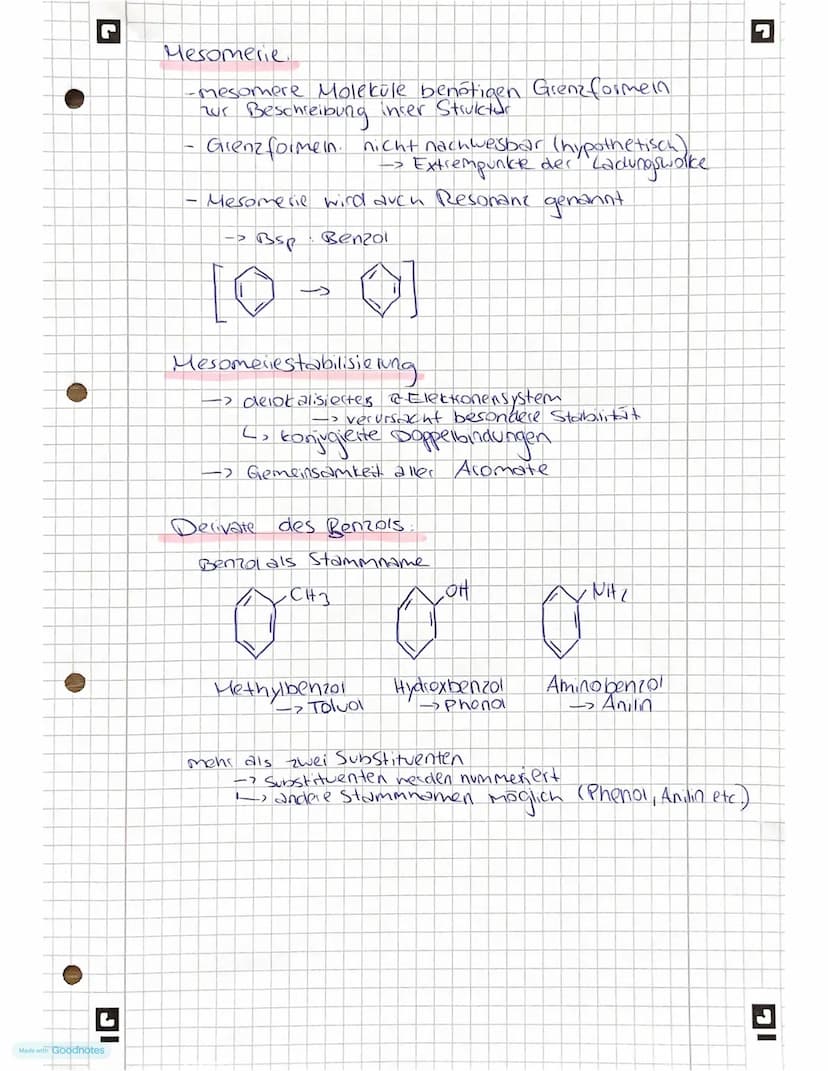 Mesomerie.
- mesomere Moleküle benötigen Grenzformeln
zur Beschreibung ihrer Struktur
- Grenzformeln. nicht nachwesbar (hypothetisch)
-> Extrempunkte der Ladungswolke
- Mesomerie wird auch Resonanz genannt
-> Bsp. Benzol
[ → ]
Mesomeriestabilisierung
-> delokalisiertes π-Elektronensystem
-> verursacht besondere Stabilität
↳ konjugierte Doppelbindungen
-> Gemeinsamkeit aller Aromate
Derivate des Benzols:
Benzol als Stammname
CH3 OH NH2
Methylbenzol Hydroxbenzol Aminobenzol
-> Toluol -> Phenol -> Anilin
mehr als zwei Substituenten
-> Substituenten werden nummeriert
↳ andere Stammnamen möglich (Phenol, Anilin etc.)
Made with Goodnotes